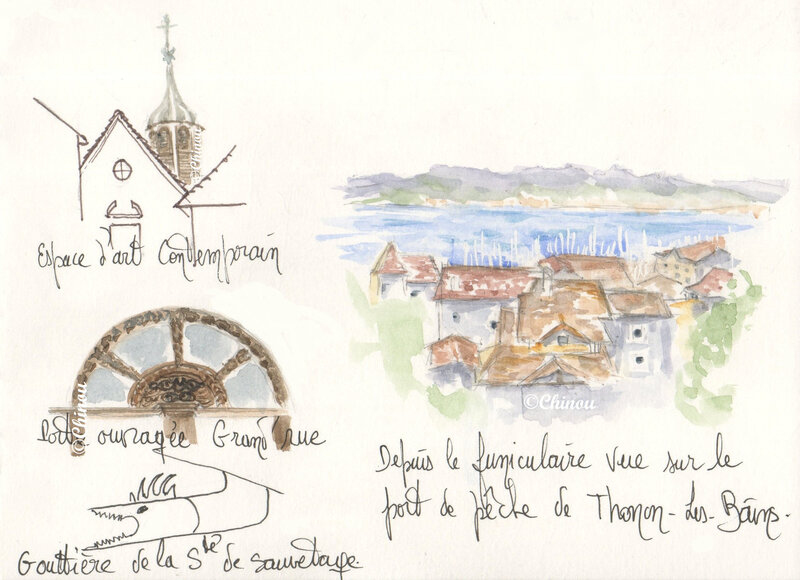 Espace d'art Contemporain
©Chinou
Porte ouvragée Grand'rue
©Chinou
Gouttière de la Sté de Sauvetage.
©Chinou
Depuis le funiculaire vue sur le
port de pêche de Thonon-Les-Bains.